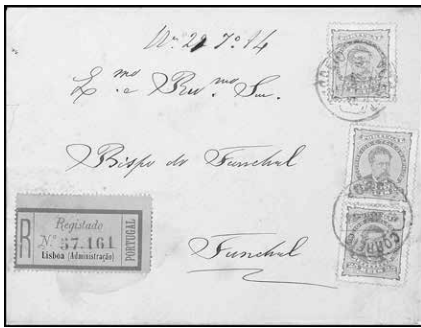 Nº 29 7º 14
Exmo e Revmo Snr.
Bispo do Funchal
Funchal
R
Registado
Nº 37.161
Lisboa (Administração)
PORTUGAL
CORREIO